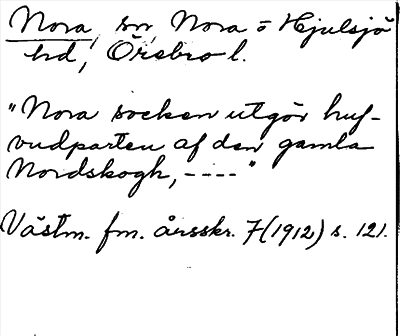 Nora, sn, Nora o Hjulsjö
hd, Örebro l.
"Nora socken utgör huf-
vudparten af den gamla
Nordskogh, ----"
Västm. fm. årsskr. 7 (1912) s. 121.